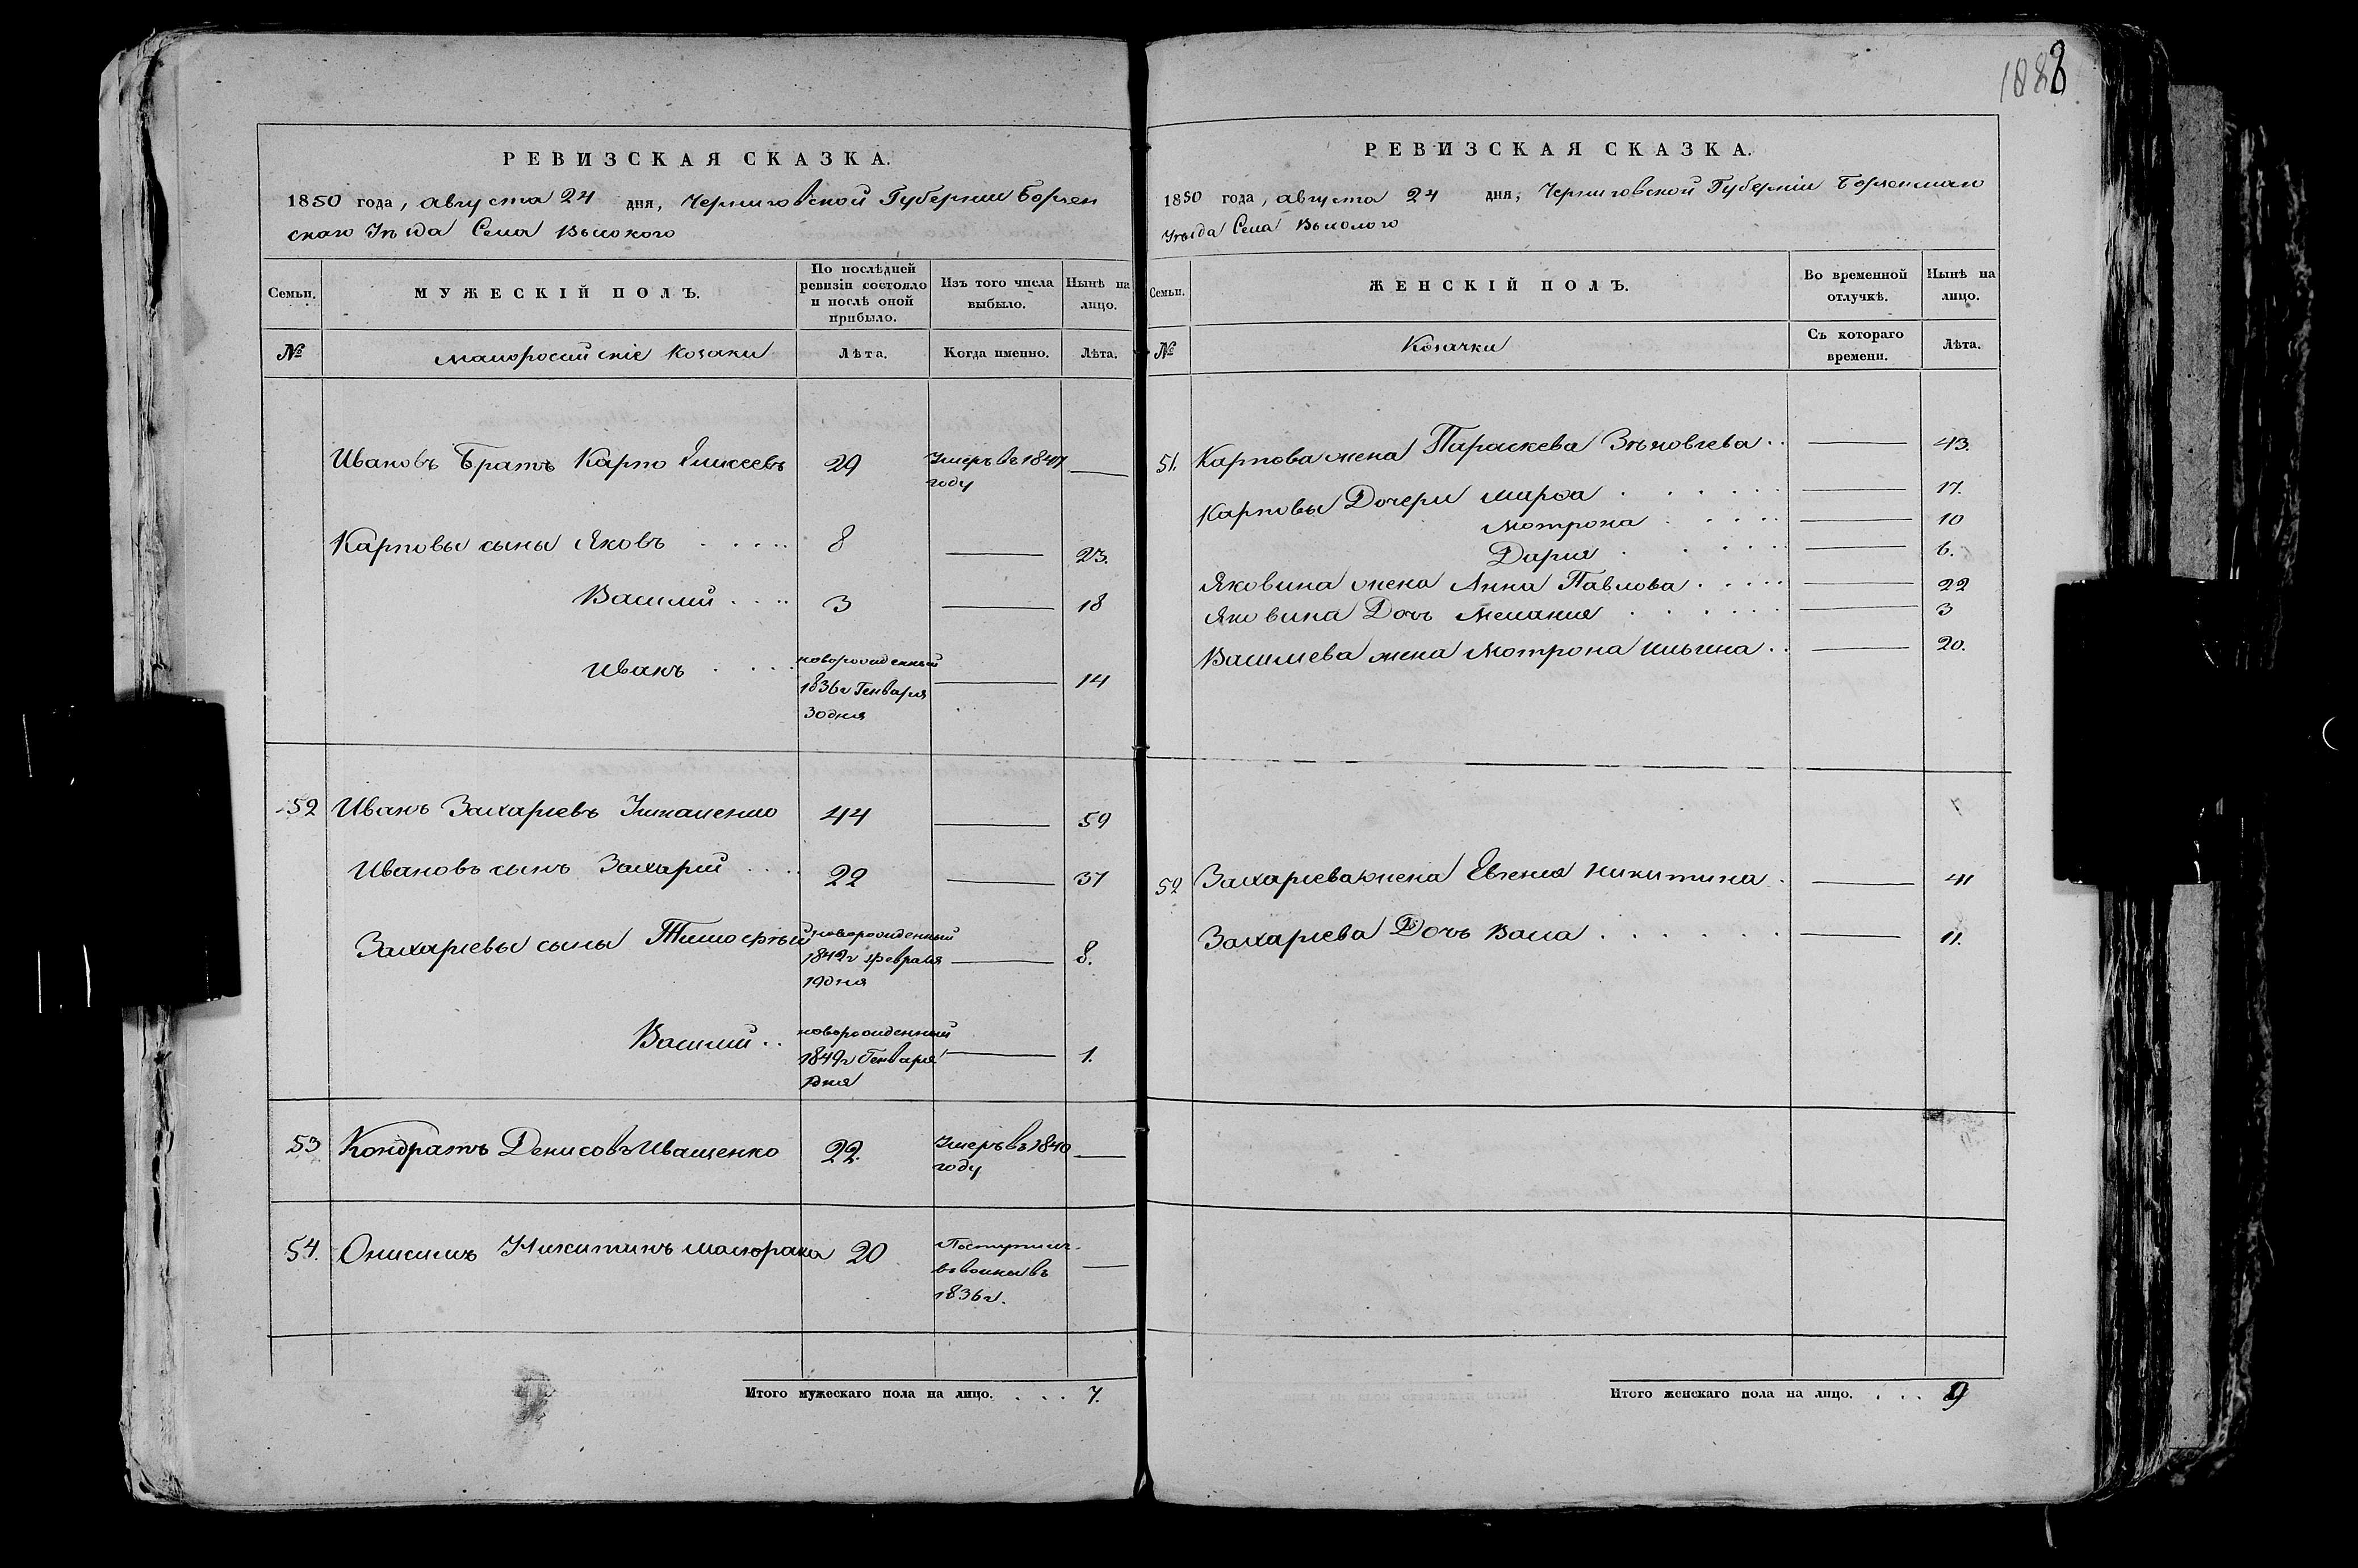 1888
РЕВИЗСКАЯ СКАЗКА.
1850 года, августа 24 дня, Черниговской Губернии Борзен
скаго Уѣзда Села Высокого
Семьи.
МУЖЕСКІЙ ПОЛЪ.
По послѣдней
ревизіи состояло
и послѣ оной
прибыло.
Изъ того числа
выбыло.
Нынѣ на
лицо.
№
Малоросийскіе Козаки
Лѣта.
Когда именно.
Лѣта.
Ивановъ Братъ Карпо Елисеевъ 29 Умеръ въ 1847 —
году
Карповы сыны Яковъ 8 — 23.
Василий 3 — 18
Иванъ новорожденный
1836г Генваря — 14
30дня
52 Иванъ Захариевъ Ушкаленко 44 — 59
Ивановъ сынъ Захарий 22 — 37
Захариевы сыны Тимофтый новорожденный
1842г февраля — 8.
19дня
Василий новорожденный
1849г Генваря — 1.
1дня
53 Кондратъ Денисовъ Иващенко 22. Умеръ въ 1840 —
году
54. Онисимъ Никитинъ 20 Поступил.
въ воины въ —
1836г.
Итого мужескаго пола на лицо. . . . 7.
РЕВИЗСКАЯ СКАЗКА.
1850 года, августа 24 дня, Черниговской Губерніи Борзенскаго
Уѣзда Села Высокого
Семьи.
ЖЕНСКІЙ ПОЛЪ.
Во временной
отлучкѣ.
Нынѣ на
лицо.
№
Козачки
Съ котораго
времени.
Лѣта.
51. Карпова жена Параскева Зѣновиева — 43.
Карповы Дочери Марфа — 17.
Мотрона — 10
Дария — 6.
Яковина жена Анна Павлова — 22
Яковина Дочъ Мелания — 3
Василиева жена Мотрона Ильина — 20.
52 Захариева жена Евгения Никитина — 41
Захариева Дочъ Васа — 11.
Итого женскаго пола на лицо. . . . 9